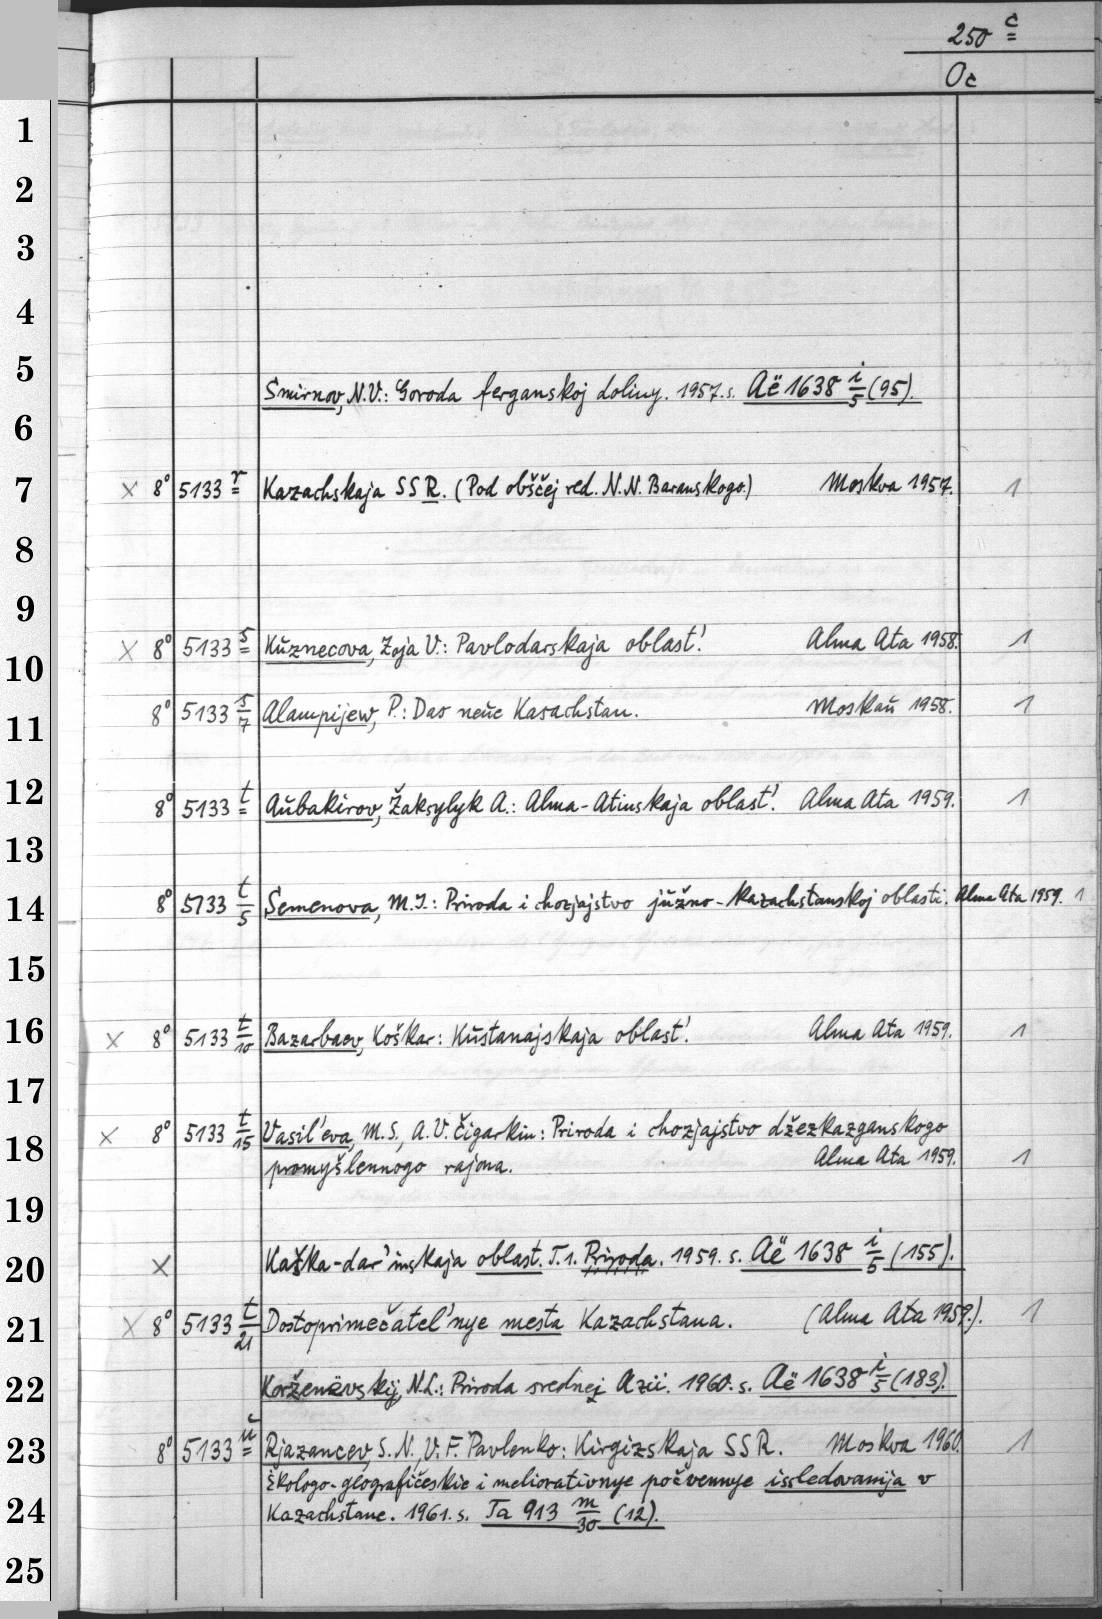 250 c
Oc
1
2
3
4
5
Smirnov, N.V.: Goroda ferganskoj doliny. 1957. s. Aë 1638 i/5 (95).
6
7 × 8° 5133 r Kazachskaja SSR. (Pod obščej red. N.N. Baranskogo.) Moskva 1957. 1
8
9
10 × 8° 5133 s Kŭznecova, Zoja V.: Pavlodarskaja oblast'. Alma Ata 1958. 1
11 8° 5133 s/7 Alampijew, P.: Das neŭe Kasachstan. Moskaŭ 1958. 1
12 8° 5133 t Aŭbakirov, Žaksylyk A.: Alma-Atinskaja oblast'. Alma Ata 1959. 1
13
14 8° 5133 t/5 Semenova, M.I.: Priroda i chozjajstvo jŭžno-kazachstanskoj oblasti. Alma Ata 1959. 1
15
16 × 8° 5133 t/10 Bazarbaev, Koškar: Kŭstanajskaja oblast'. Alma Ata 1959. 1
17
18 × 8° 5133 t/15 Vasil'eva, M.S., A.V. Čigarkin: Priroda i chozjajstvo džezkazganskogo
promyšlennogo rajona. Alma Ata 1959. 1
19
20 × Kaška-dar'inskaja oblast. T.1. Priroda. 1959. s. Aë 1638 i/5 (155).
21 × 8° 5133 t/21 Dostoprimečatel'nye mesta Kazachstana. (Alma Ata 1959.). 1
22 Korženëvskij, N.L.: Priroda srednej Azii. 1960. s. Aë 1638 i/5 (183).
23 8° 5133 ŭ Rjazancev, S.N., V.F. Pavlenko: Kirgizskaja SSR. Moskva 1960. 1
Èkologo-geografičeskie i meliorativnye počvennye issledovanija v
24 Kazachstane. 1961. s. Ta 913 m/30 (12).
25